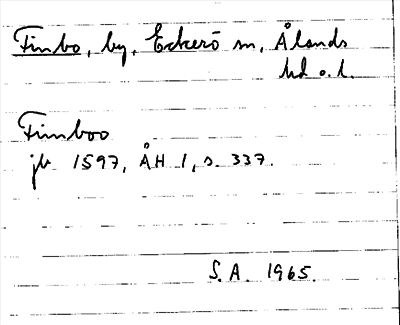 Finbo, by, Eckerö sn, Ålands
hd o. l.
Finnboo
jb 1597, ÅH 1, s. 337.
S.A. 1965.